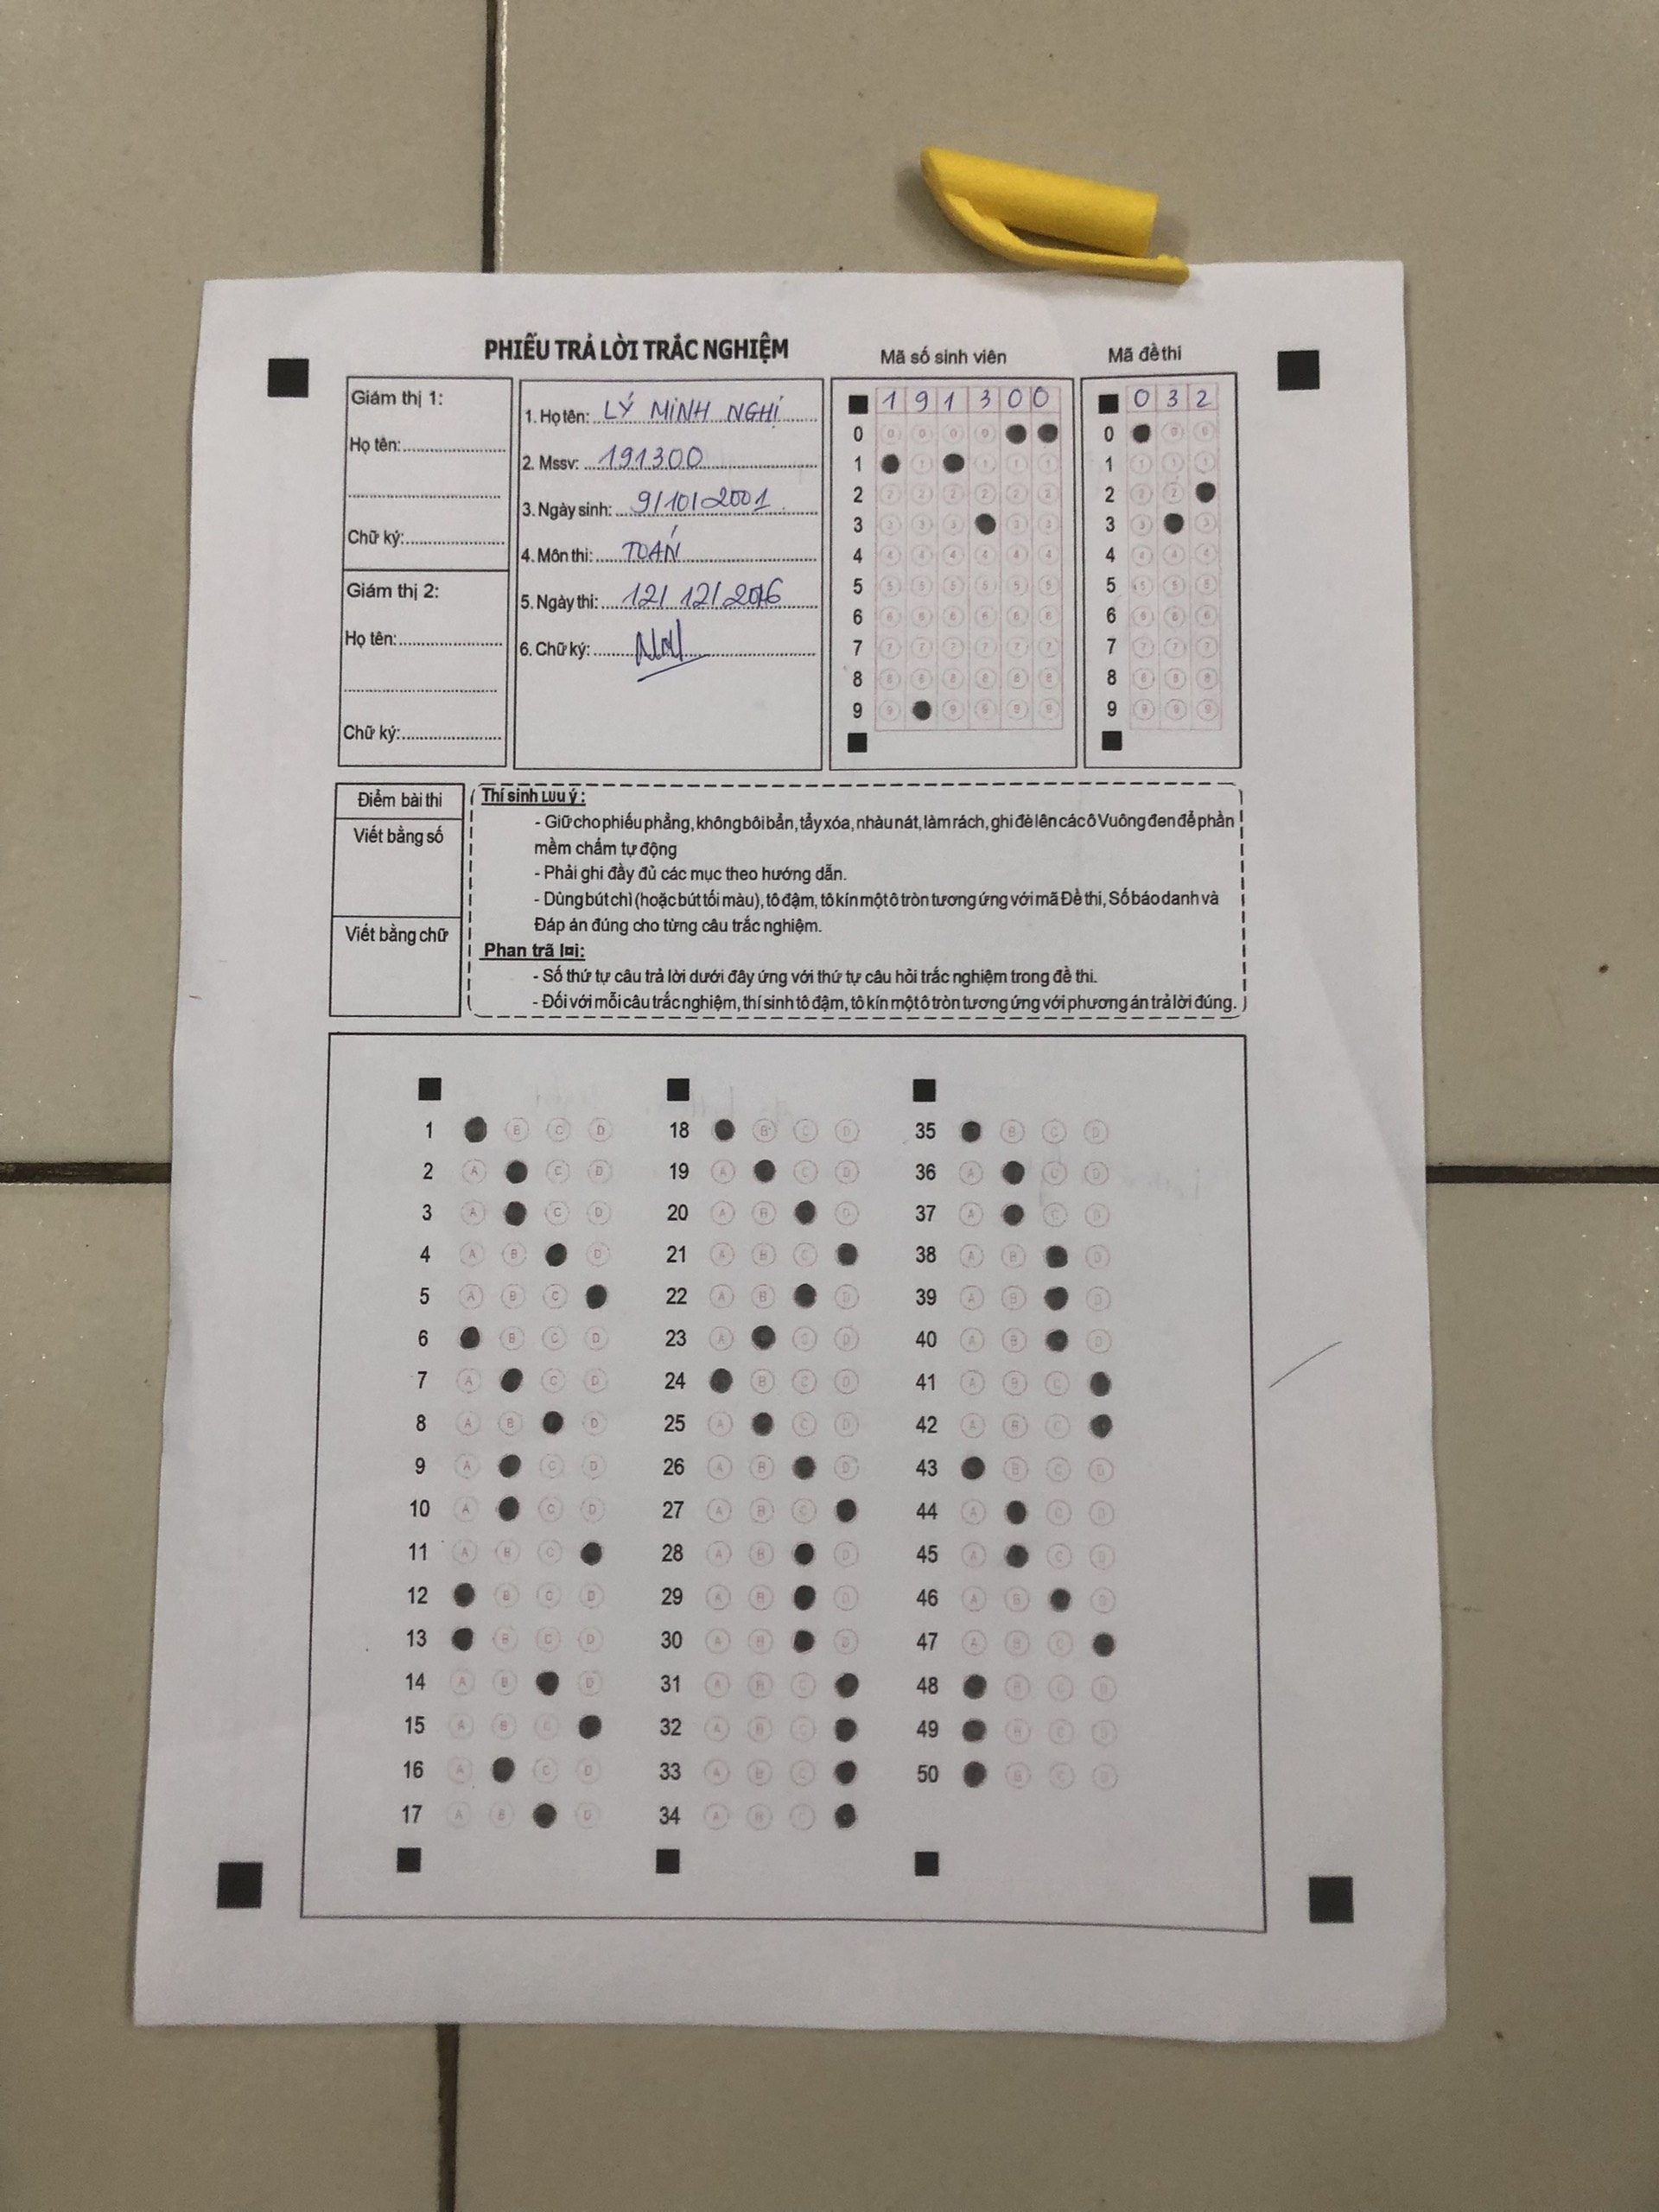 PHIẾU TRẢ LỜI TRẮC NGHIỆM
Giám thị 1:
Họ tên:
Chữ ký:
Giám thị 2:
Họ tên:
Chữ ký:
1. Họ tên: LÝ MINH NGHÍ
2. Mssv: 191300
3. Ngày sinh: 9/10/2001
4. Môn thi: TOÁN
5. Ngày thi: 12/12/2016
6. Chữ ký:
Mã số sinh viên
1 9 1 3 0 0
0 0 0 0 0
1 1 1 1 1
2 2 2 2 2 2 2
3 3 3 3 3 3
4 4 4 4 4 4 4
5 5 5 5 5 5 5
6 6 6 6 6 6 6
7 7 7 7 7 7 7
8 8 8 8 8 8 8
9 9 9 9 9 9
Mã đề thi
0 3 2
0 0 0
1 1 1 1
2 2 2
3 3 3
4 4 4 4
5 5 5 5
6 6 6 6
7 7 7 7
8 8 8 8
9 9 9 9
Điểm bài thi
Viết bằng số
Viết bằng chữ
Thí sinh Lưu ý:
- Giữ cho phiếu phẳng, không bôi bẩn, tẩy xóa, nhàu nát, làm rách, ghi đè lên các ô Vuông đen để phần
mềm chấm tự động
- Phải ghi đầy đủ các mục theo hướng dẫn.
- Dùng bút chì (hoặc bút tối màu), tô đậm, tô kín một ô tròn tương ứng với mã Đề thi, Số báo danh và
Đáp án đúng cho từng câu trắc nghiệm.
Phan trã lơi:
- Số thứ tự câu trả lời dưới đây ứng với thứ tự câu hỏi trắc nghiệm trong đề thi.
- Đối với mỗi câu trắc nghiệm, thí sinh tô đậm, tô kín một ô tròn tương ứng với phương án trả lời đúng.
1 B C D
2 A C D
3 A C D
4 A B D
5 A B C
6 B C D
7 A C D
8 A B D
9 A C D
10 A C D
11 A B C
12 B C D
13 B C D
14 A B D
15 A B C
16 A C D
17 A B D
18 B C D
19 A C D
20 A B D
21 A B C
22 A B D
23 A C D
24 B C D
25 A C D
26 A B D
27 A B C
28 A B D
29 A B D
30 A B D
31 A B C
32 A B C
33 A B C
34 A B C
35 B C D
36 A C D
37 A C D
38 A B D
39 A B D
40 A B D
41 A B C
42 A B C
43 B C D
44 A C D
45 A C D
46 A B D
47 A B C
48 B C D
49 B C D
50 B C D